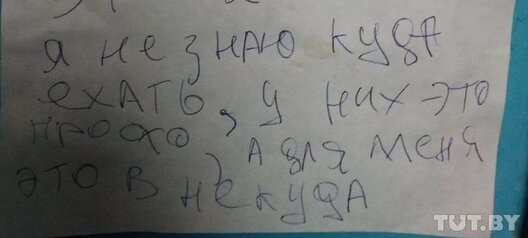 я не знаю куда
ехать, у них это
просто, а для меня
это в некуда
TUT.BY